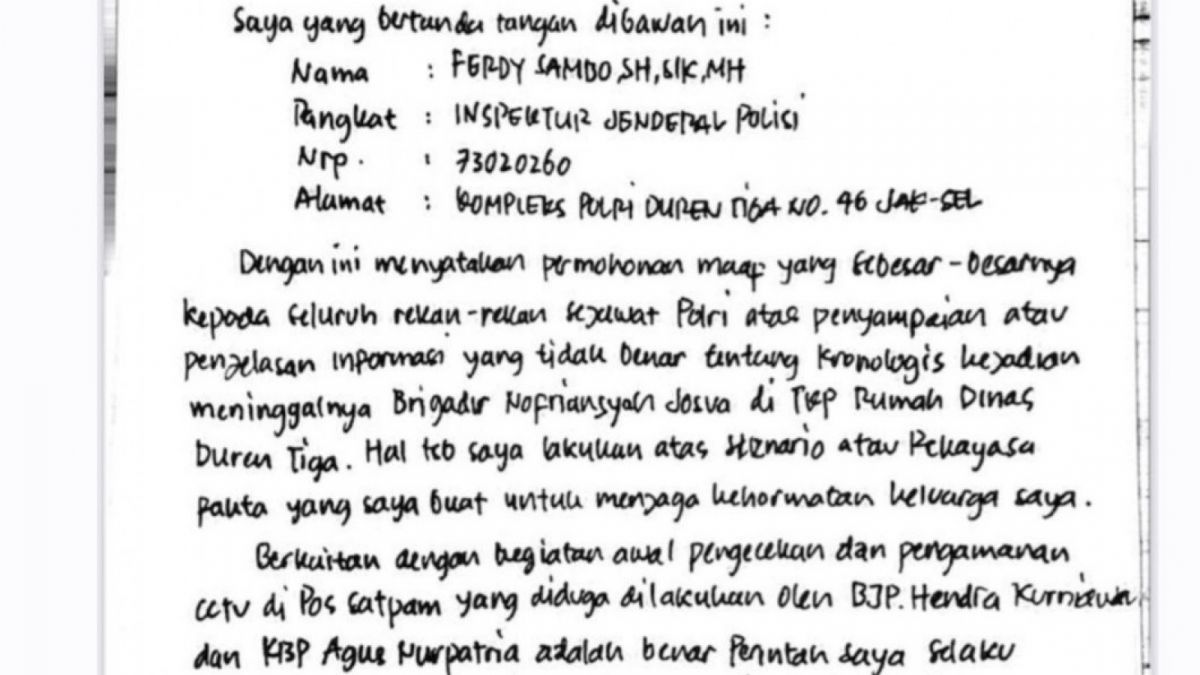 Saya yang bertanda tangan dibawah ini :
Nama : FERDY SAMBO, SH, SIK, MH
Pangkat : INSPEKTUR JENDERAL POLISI
Nrp. : 73020260
Alamat : KOMPLEKS POLRI DUREN TIGA NO. 46 JAK-SEL
Dengan ini menyatakan permohonan maaf yang sebesar-besarnya
kepada seluruh rekan-rekan sejawat Polri atas penyampaian atau
penjelasan informasi yang tidak benar tentang kronologis kejadian
meninggalnya Brigadir Nofriansyah Josua di TKP Rumah Dinas
Duren Tiga. Hal tsb saya lakukan atas skenario atau Rekayasa
fakta yang saya buat untuk menjaga kehormatan keluarga saya.
Berkaitan dengan kegiatan awal pengecekan dan pengamanan
cctv di Pos Satpam yang diduga dilakukan oleh BJP. Hendra Kurniawan
dan KBP Agus Nurpatria adalah benar Perintah saya selaku